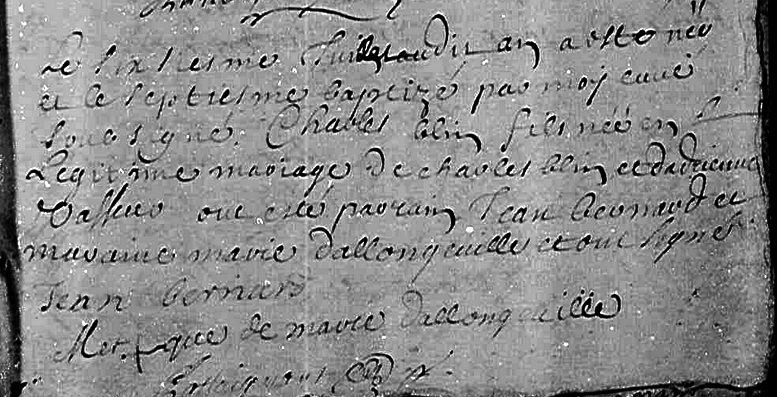 Le sixiesme Juillet audit an a esté né
et le septiesme baptizé par moy curé
soussigné. Charles blin fils né en
Legitime mariage de charles blin et dadrienne
Vasseur ont esté parain Jean bernard et
maraine marie dallongeuille et ont signés
Jean bernard
Marque de marie dallongeuille